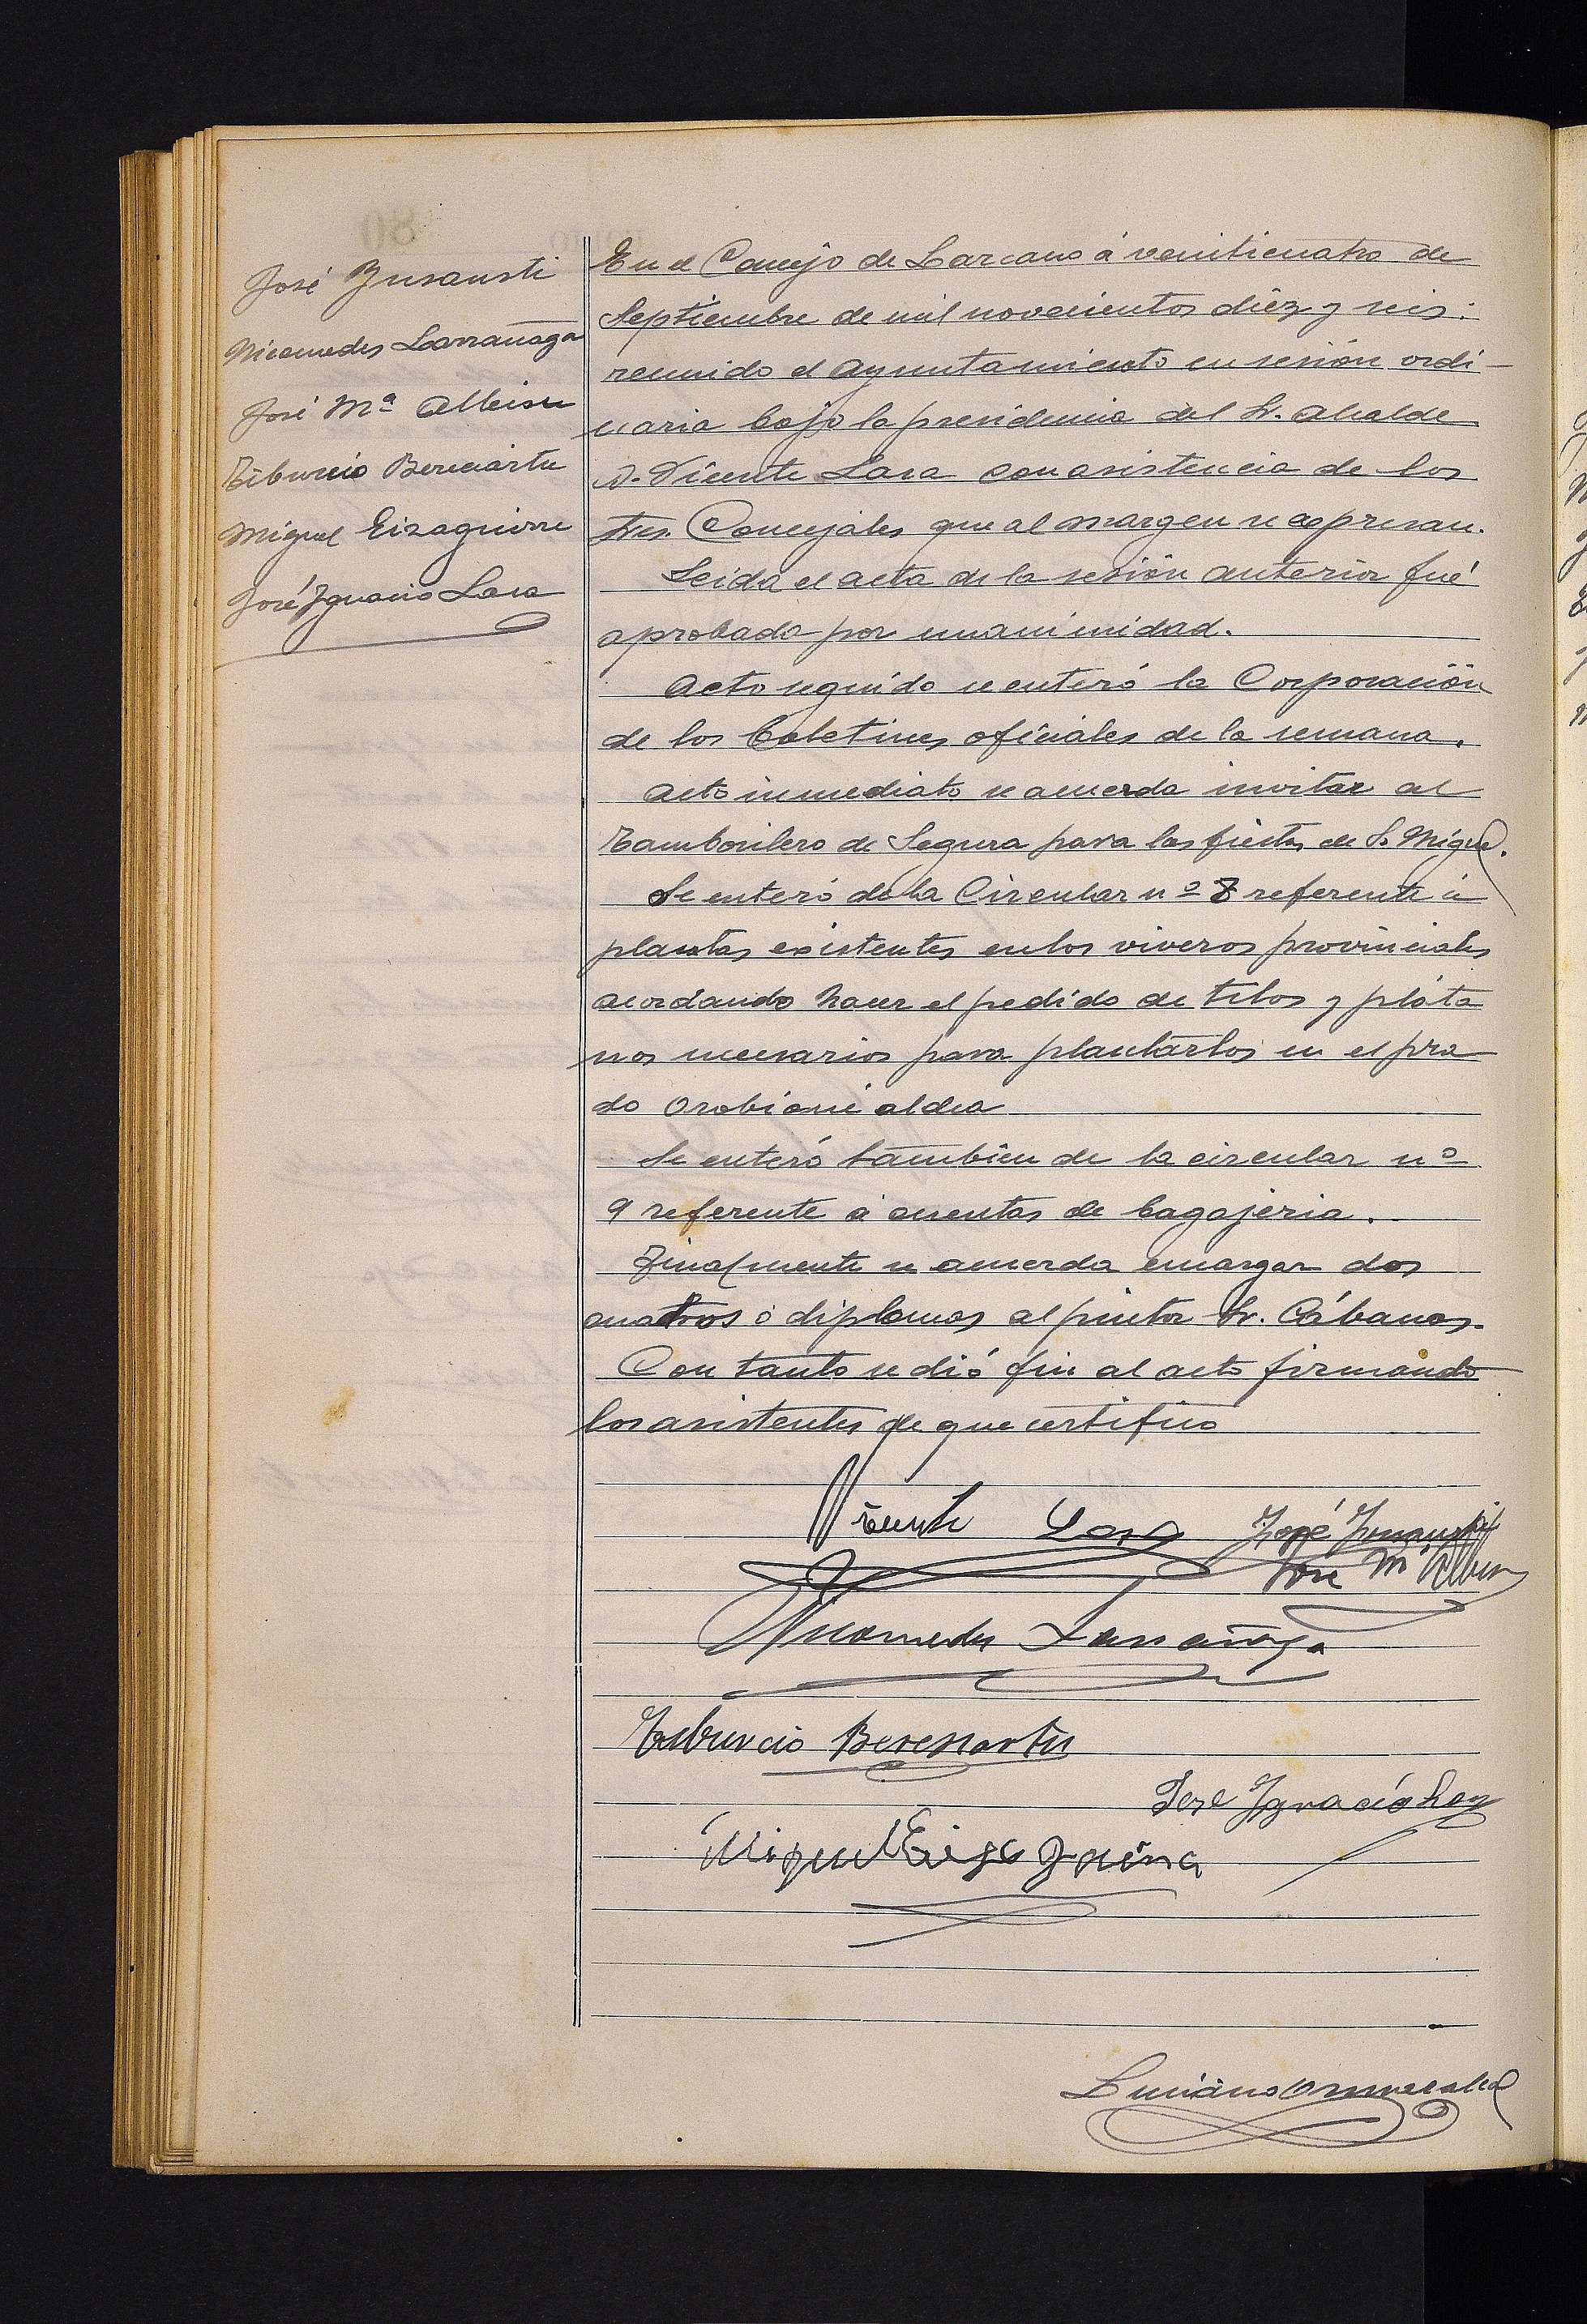 José Insausti
Nicomedes Larrañaga
José Mª Albisu
Tiburcio Bereciartu
Miguel Eizaguirre
José Ignacio Lasa
En el Concejo de Lazcano á veniticuatro de
Septiembre de mil novecientos diez y seis:
reunido el Ayuntamiento en sesión ordi-
naria bajo la presidencia del Sr. Alcalde
D. Vicente Lasa con asistencia de los
Sres. Concejales que al margen se expresan.
Leida el acta de la sesión anterior fué
aprobada por unanimidad.
Acto seguido se enteró la Corporación
de los boletines oficiales de la semana.
Acto inmediato se acuerda invitar al
Tamborilero de Segura para las fiestas de S. Miguel.
Se enteró de la Circular nº 8 referente á
plantas existentes en los viveros provinciales
acordando hacer el pedido de tilos y pláta
nos necesarios para plantarlos en el pra
do aldea
Se enteró tambien de la circular nº
9 referente á cuentas de bagajeria.
Finalmente se acuerda encargar dos
cuadros ó diplomas al pintor Sr. Cábanas.
Con tanto se dió fin al acto firmando
los asistentes de que certifico
Vicente Lasa José Insausti
José Mª Albisu
Nicomedes Larrañaga
Tiburcio Bereciartu
José Ignacio Lasa
Miguel Eizaguirre
Luciano